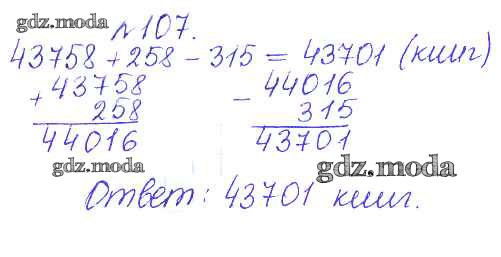 gdz.moda
№107.
43758 + 258 - 315 = 43701 (книг)
+ 43758
258
44016
- 44016
315
43701
gdz.moda
gdz.moda
Ответ: 43701 книг.